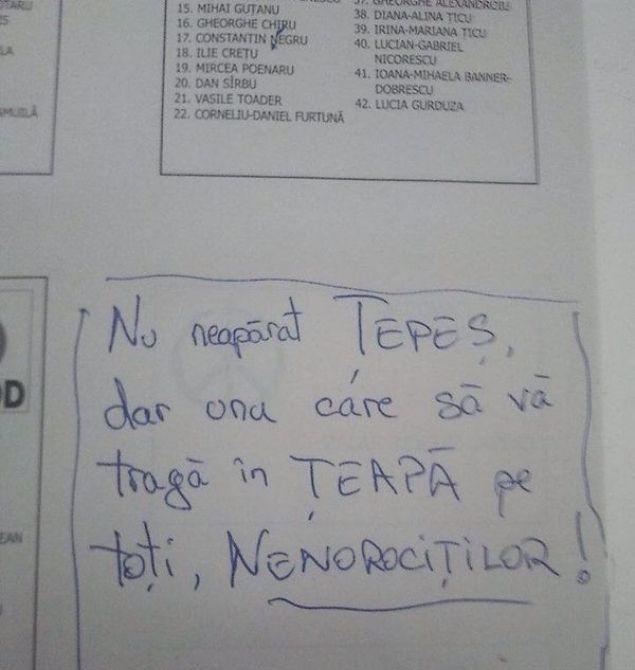 15. MIHAI GUȚANU
16. GHEORGHE CHIRU
17. CONSTANTIN NEGRU
18. ILIE CREȚU
19. MIRCEA POENARU
20. DAN SÎRBU
21. VASILE TOADER
22. CORNELIU-DANIEL FURTUNĂ
37. GHEORGHE ALEXANDROIU
38. DIANA-ALINA ȚICU
39. IRINA-MARIANA ȚICU
40. LUCIAN-GABRIEL
NICORESCU
41. IOANA-MIHAELA BANNER-
DOBRESCU
42. LUCIA GURDUZA
Nu neapărat ȚEPEȘ,
dar unu care să vă
tragă în ȚEAPĂ pe
toți, NENOROCIȚILOR!